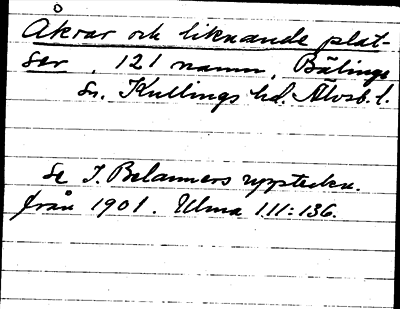 Åkrar och liknande plat-
ser, 121 namn, Bälinge
Sn. Kullings hd. Älvsb. l.
Se I. Belanners uppteckn.
från 1901. Ulma 111:136.